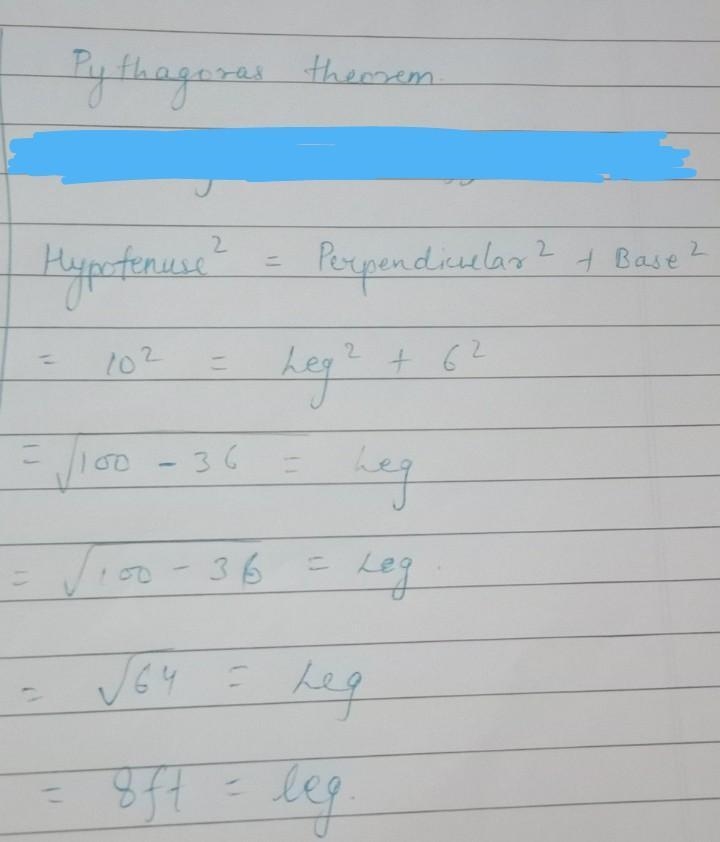 Pythagoras theorem.
Hypotenuse² = Perpendicular² + Base²
= 10² = Leg² + 6²
= √100 - 36 = Leg
= √100 - 36 = Leg.
= √64 = Leg
= 8ft = leg.